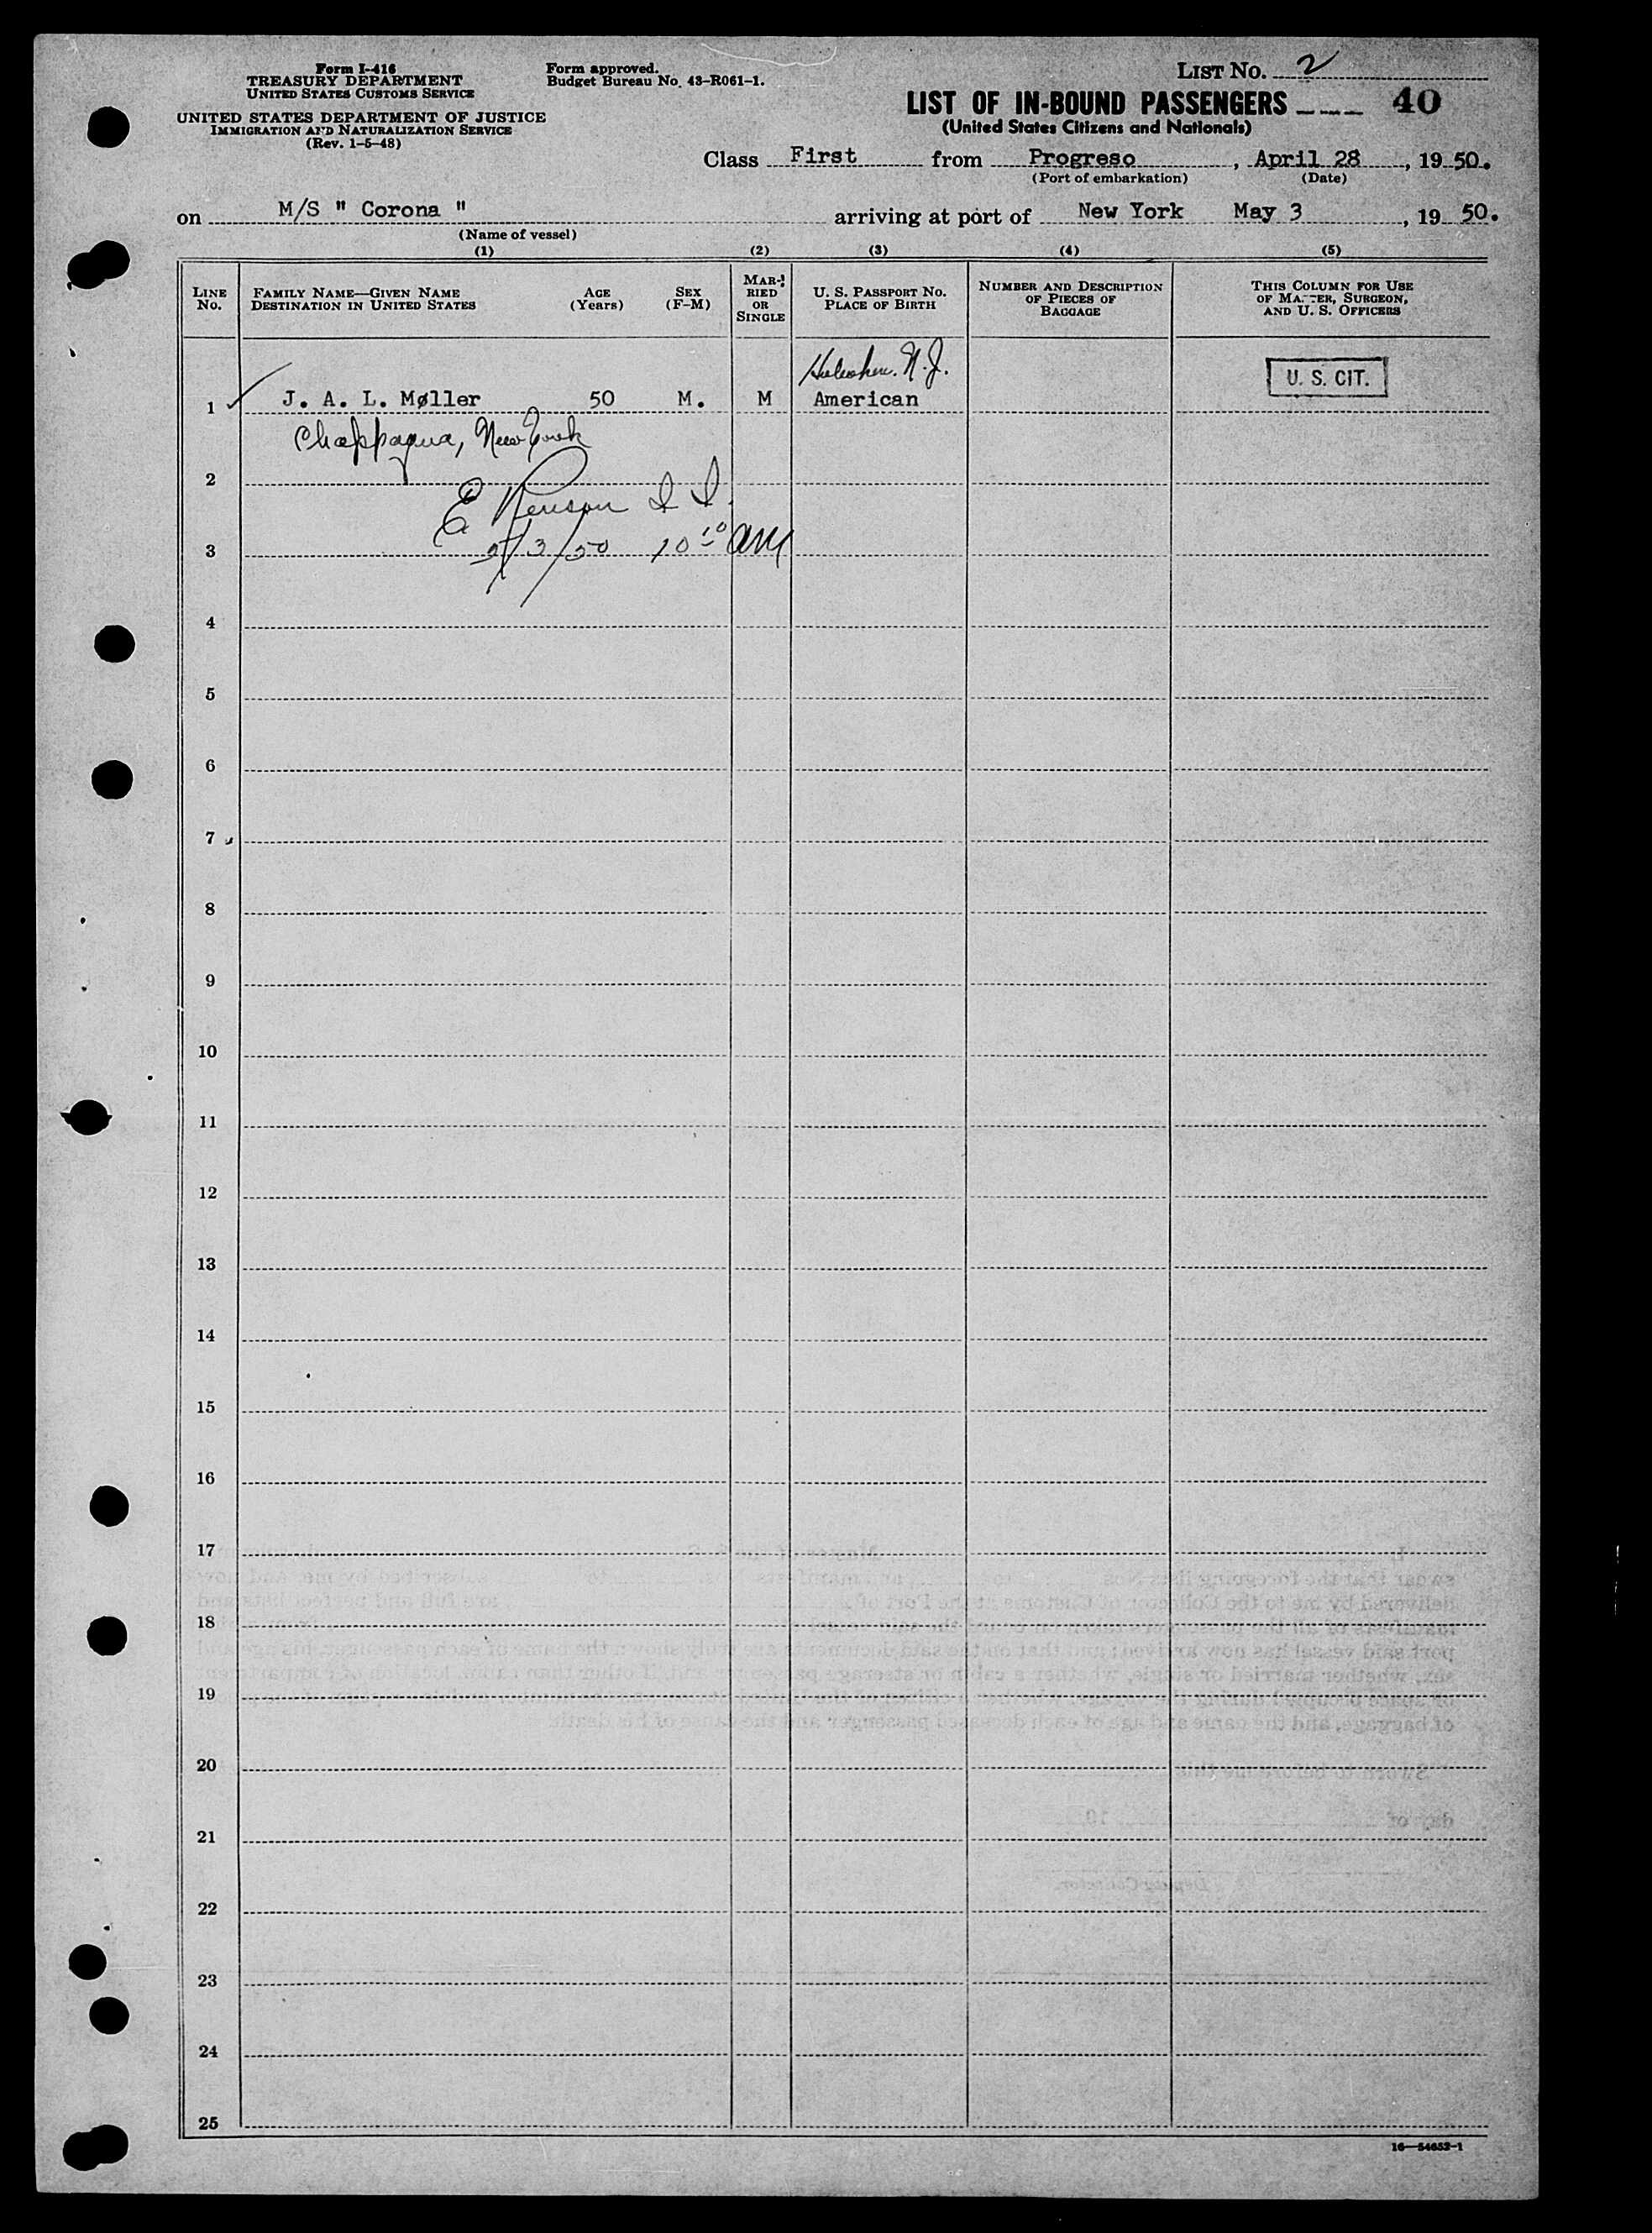 Form I-416
TREASURY DEPARTMENT
UNITED STATES CUSTOMS SERVICE
UNITED STATES DEPARTMENT OF JUSTICE
IMMIGRATION AND NATURALIZATION SERVICE
(Rev. 1-5-48)
Form approved.
Budget Bureau No. 43-R061-1.
LIST NO. 2
LIST OF IN-BOUND PASSENGERS 40
(United States Citizens and Nationals)
Class First from Progreso, April 28, 1950.
(Port of embarkation) (Date)
on M/S " Corona " arriving at port of New York May 3, 1950.
(Name of vessel)
(1) (2) (3) (4) (5)
LINE No.
FAMILY NAME—GIVEN NAME
DESTINATION IN UNITED STATES
AGE
(Years)
SEX
(F-M)
MAR-
RIED
OR
SINGLE
U. S. PASSPORT NO.
PLACE OF BIRTH
NUMBER AND DESCRIPTION
OF PIECES OF
BAGGAGE
THIS COLUMN FOR USE
OF MASTER, SURGEON,
AND U. S. OFFICERS
Hoboken. N.J.
U. S. CIT.
1 J. A. L. Møller 50 M. M American
Chappaqua, New York
2
E
5/3/50 10 10 AM
3
4
5
6
7
8
9
10
11
12
13
14
15
16
17
18
19
20
21
22
23
24
25
16—54652-1